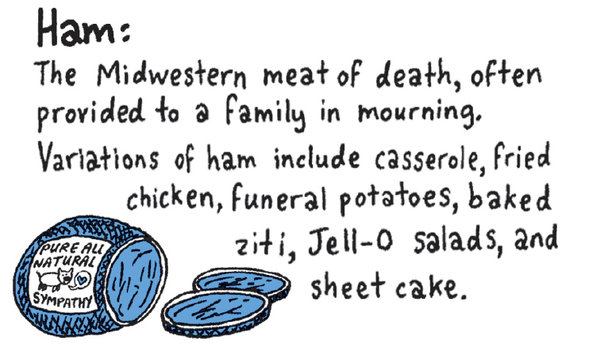 Ham:
The Midwestern meat of death, often
provided to a family in mourning.
Variations of ham include casserole, fried
chicken, funeral potatoes, baked
ziti, Jell-O salads, and
sheet cake.
PURE ALL
NATURAL
SYMPATHY